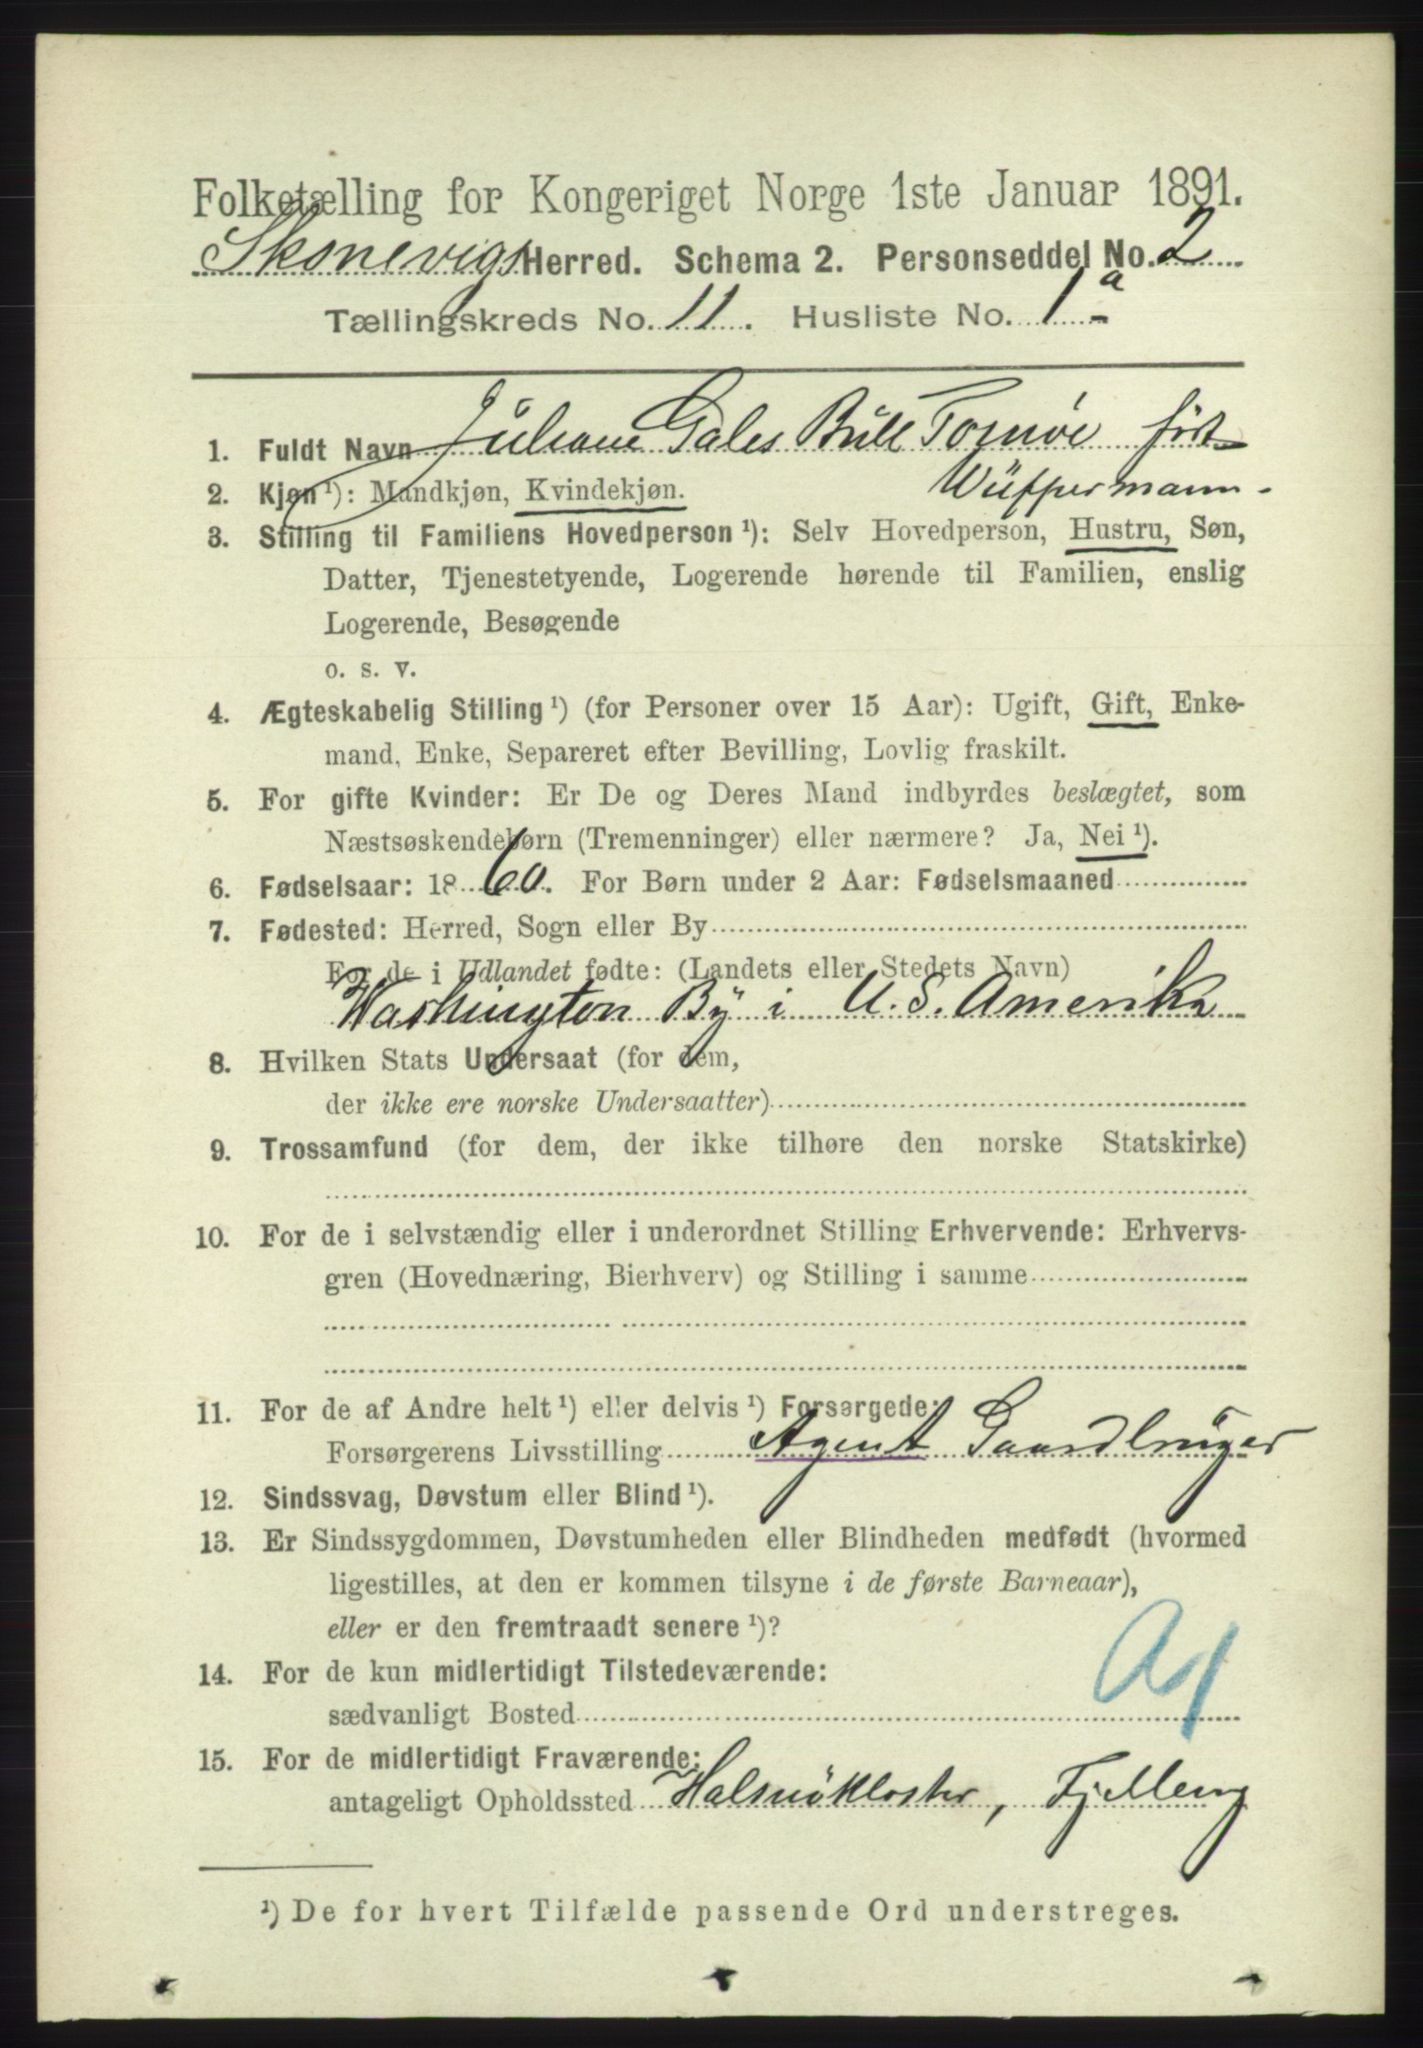 Folketælling for Kongeriget Norge 1ste Januar 1891.
Skonevigs Herred. Schema 2. Personseddel No. 2
Tællingskreds No. 11. Husliste No. 1a
1. Fuldt Navn Juliane Gales Bull Tornøe født
Wüffermann.
2. Kjøn ¹): Mandkjøn, Kvindekjøn.
3. Stilling til Familiens Hovedperson ¹): Selv Hovedperson, Hustru, Søn,
Datter, Tjenestetyende, Logerende hørende til Familien, enslig
Logerende, Besøgende
o. s. v.
4. Ægteskabelig Stilling ¹) (for Personer over 15 Aar): Ugift, Gift, Enke-
mand, Enke, Separeret efter Bevilling, Lovlig fraskilt.
5. For gifte Kvinder: Er De og Deres Mand indbyrdes beslægtet, som
Næstsøskendebørn (Tremenninger) eller nærmere? Ja, Nei ¹).
6. Fødselsaar: 1860. For Børn under 2 Aar: Fødselsmaaned
7. Fødested: Herred, Sogn eller By
For de i Udlandet fødte: (Landets eller Stedets Navn)
Washington By i U. S. Amerika
8. Hvilken Stats Undersaat (for dem,
der ikke ere norske Undersaatter)
9. Trossamfund (for dem, der ikke tilhøre den norske Statskirke)
10. For de i selvstændig eller i underordnet Stilling Erhvervende: Erhvervs-
gren (Hovednæring, Bierhverv) og Stilling i samme
11. For de af Andre helt ¹) eller delvis ¹) Forsørgede:
Forsørgerens Livsstilling Agent Gaardbruger
12. Sindssvag, Døvstum eller Blind ¹).
13. Er Sindssygdommen, Døvstumheden eller Blindheden medfødt (hvormed
ligestilles, at den er kommen tilsyne i de første Barneaar),
eller er den fremtraadt senere ¹)?
14. For de kun midlertidigt Tilstedeværende:
sædvanligt Bosted
15. For de midlertidigt Fraværende:
antageligt Opholdssted Halsnökloster, Fjelberg
¹) De for hvert Tilfælde passende Ord understreges.